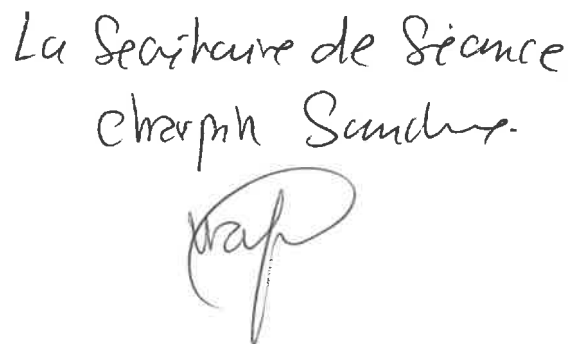 La Secrétaire de Séance
Charpin Sandra